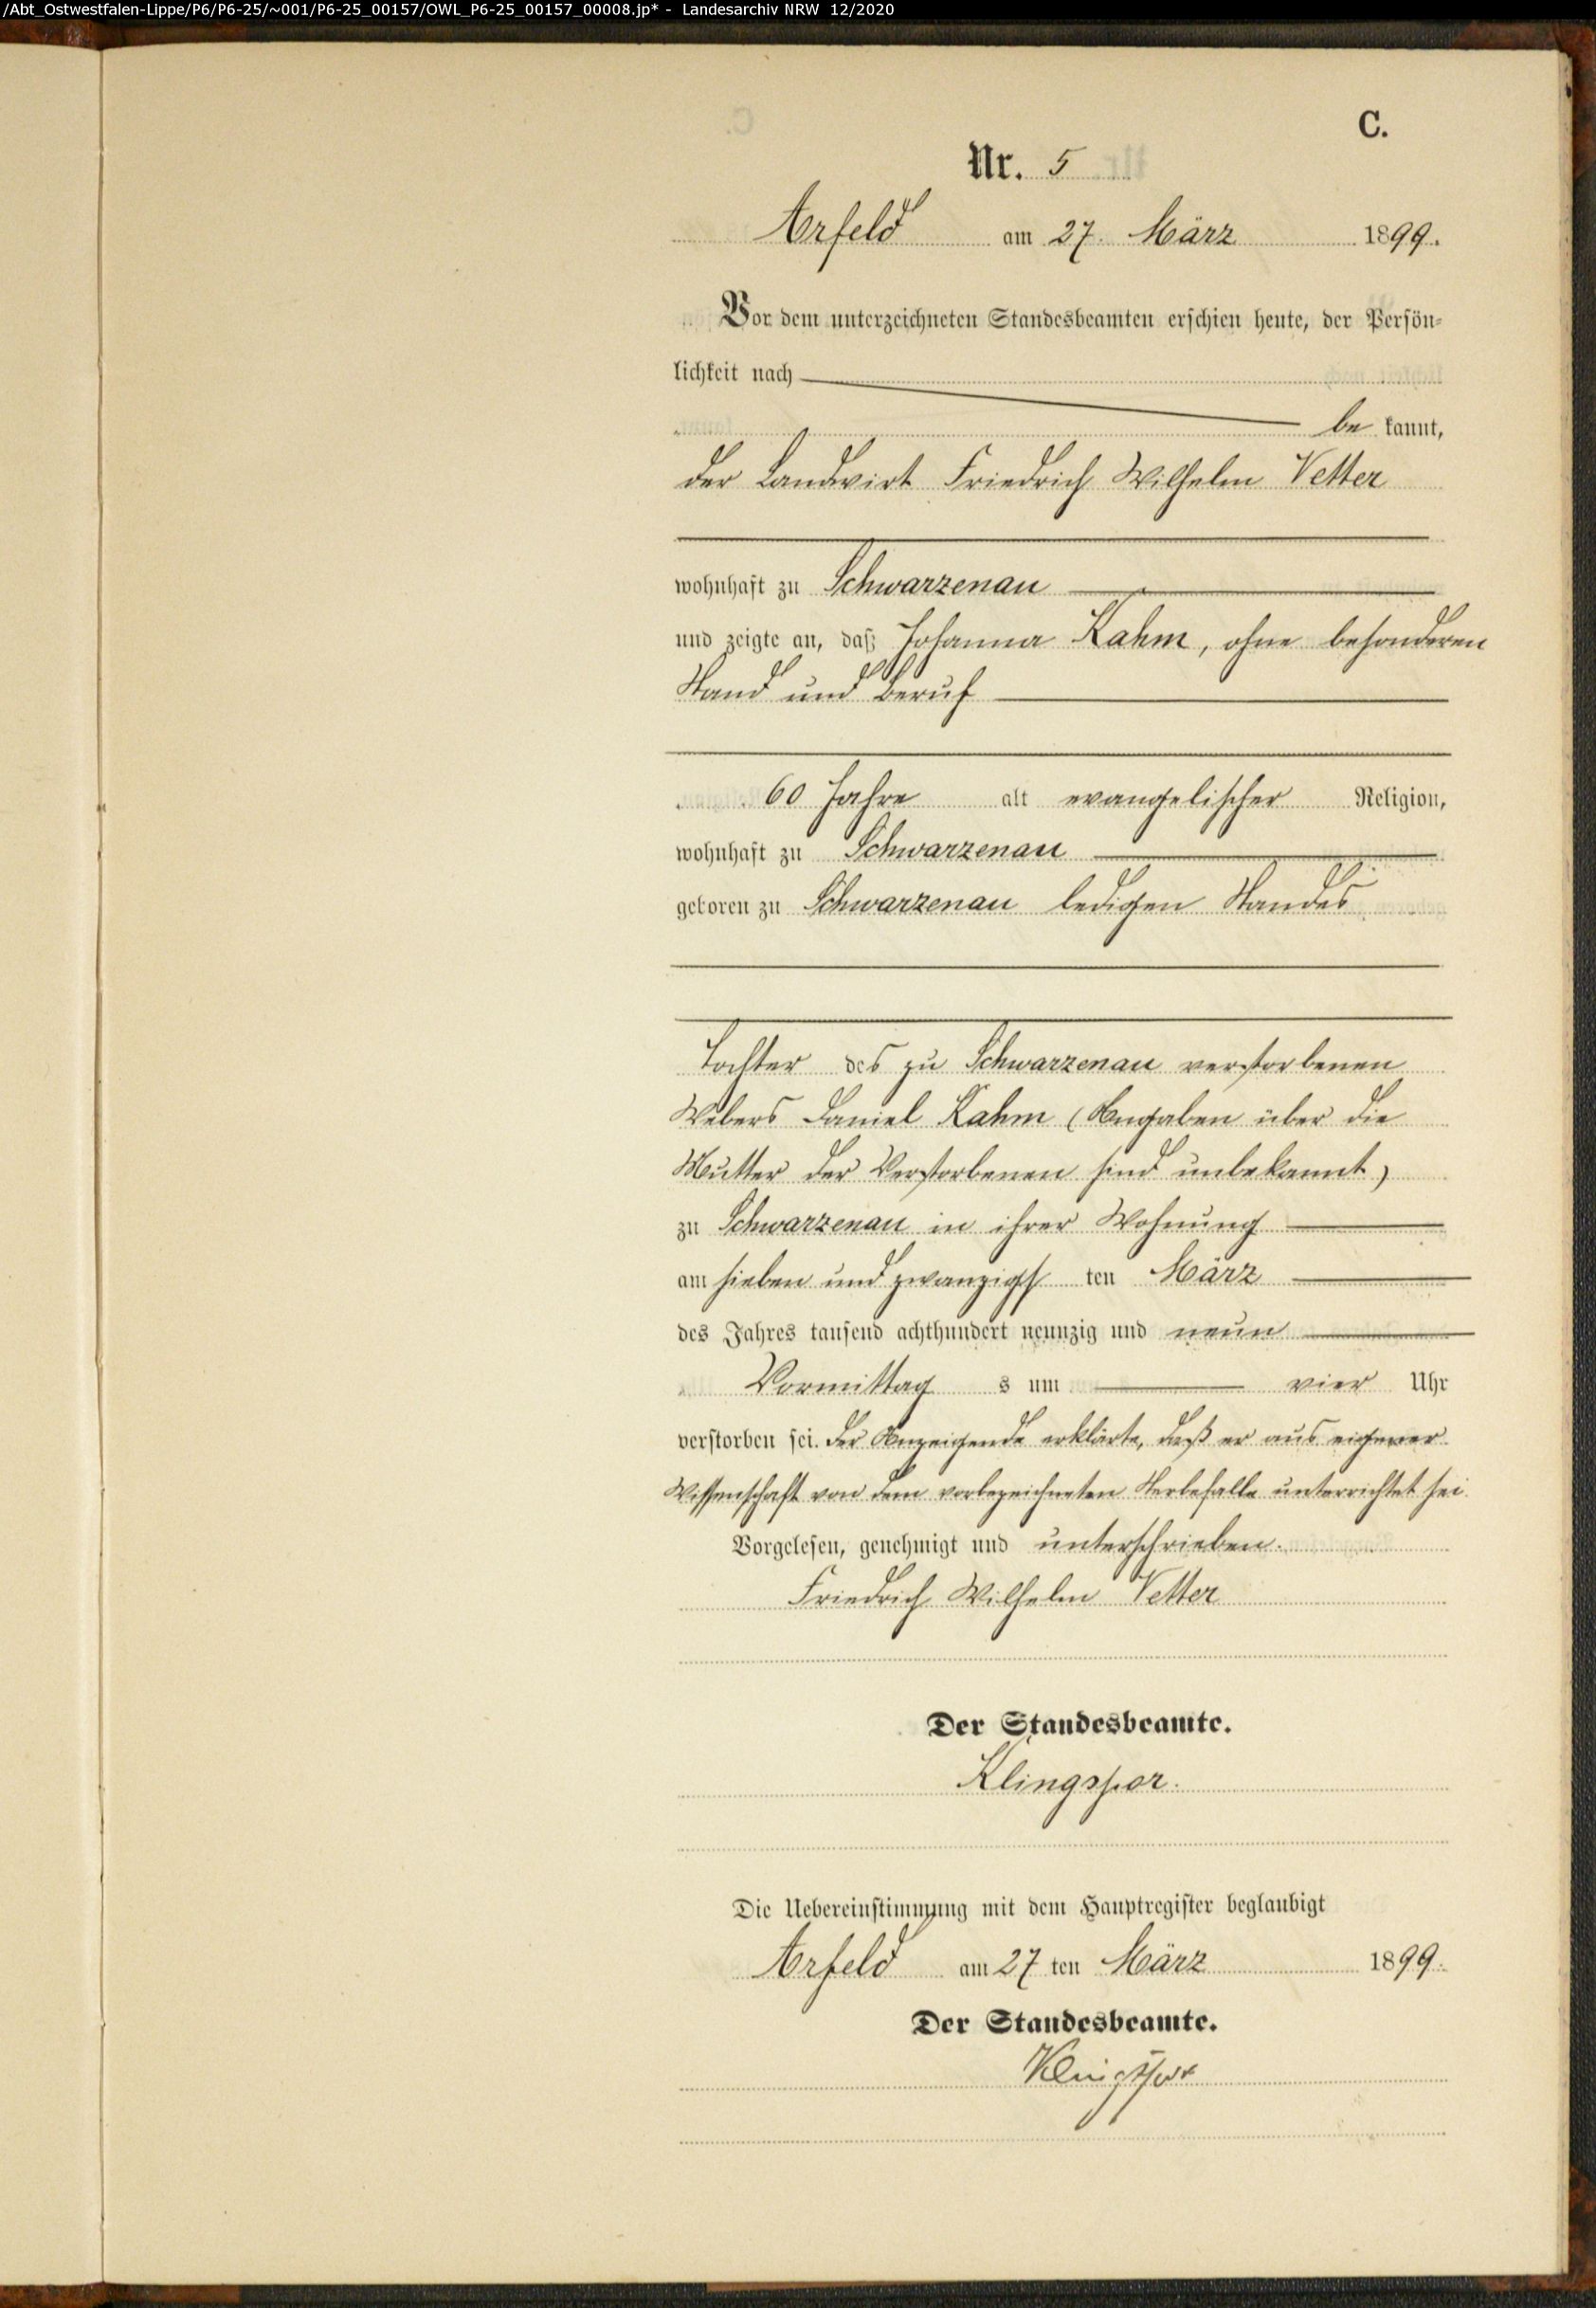 /Abt_Ostwestfalen-Lippe/P6/P6-25/~001/P6-25_00157/OWL_P6-25_00157_00008.jp* - Landesarchiv NRW 12/2020
C.
Nr. 5
Arfeld am 27. März 1899.
Vor dem unterzeichneten Standesbeamten erschien heute, der Persön-
lichkeit nach
be kannt,
der Landwirt Friedrich Wilhelm Vetter
wohnhaft zu Schwarzenau
und zeigte an, daß Johanna Kahm, ohne besonderen
Stand und Beruf
60 Jahre alt evangelischer Religion,
wohnhaft zu Schwarzenau
geboren zu Schwarzenau ledigen Standes
Tochter des zu Schwarzenau verstorbenen
Webers Daniel Kahm (Angaben über die
Mutter der Verstorbenen sind unbekannt)
zu Schwarzenau in ihrer Wohnung
am sieben und zwanzigs ten März
des Jahres tausend achthundert neunzig und neun
Vormittag s um vier Uhr
verstorben sei. Der Anzeigende erklärte, daß er aus eigener
Wissenschaft von dem vorbezeichneten Sterbefalle unterrichtet sei.
Vorgelesen, genehmigt und unterschrieben.
Friedrich Wilhelm Vetter
Der Standesbeamte.
Klingspor.
Die Uebereinstimmung mit dem Hauptregister beglaubigt
Arfeld am 27 ten März 1899.
Der Standesbeamte.
Klingspor